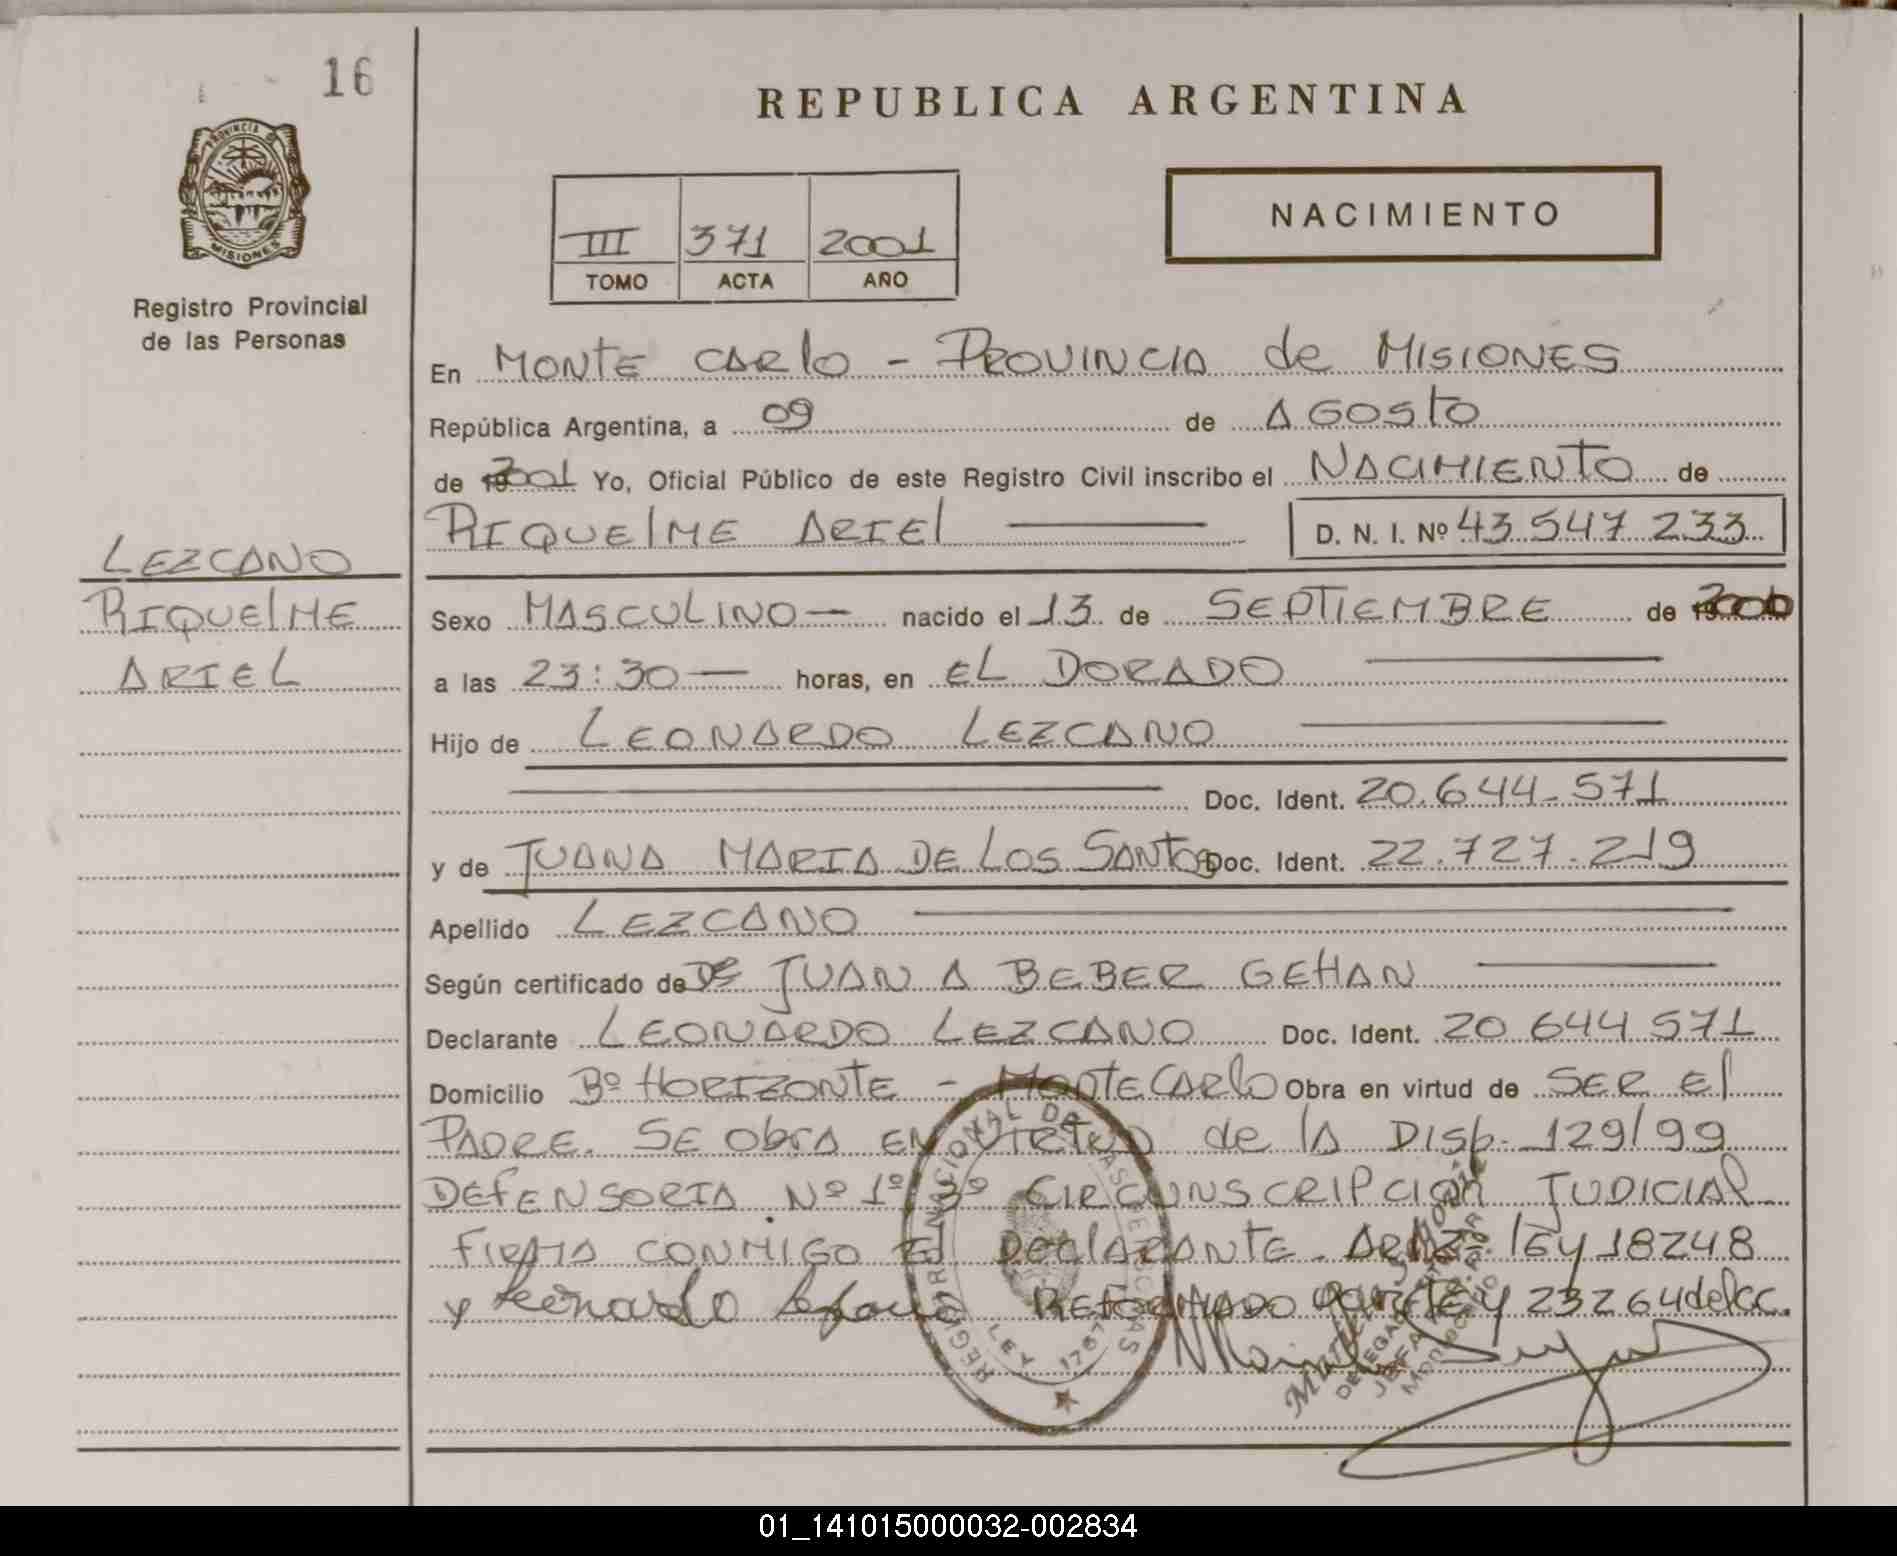 16
PROVINCIA DE
MISIONES
Registro Provincial
de las Personas
LEZCANO
RIQUElME
ARIEL
REPUBLICA ARGENTINA
III 371 2001
TOMO ACTA AÑO
NACIMIENTO
En MONTE CARlo - PROVINCIA de MISIONES
República Argentina, a 09 de AGOSTO
de 2001 Yo, Oficial Público de este Registro Civil inscribo el NACIMIENTO de
RIQUElME ARIEl D. N. I. Nº 43.547.233
Sexo MASCULINO — nacido el 13 de SEPTIEMBRE de 2000
a las 23:30 — horas, en EL DORADO
Hijo de LEONARDO LEZCANO
Doc. Ident. 20.644.571
y de JUANA MARIA DE LOS SANTOS Doc. Ident. 22.727.219
Apellido LEZCANO
Según certificado de DE JUAN A BEBER GEHAN
Declarante LEONARDO LEZCANO Doc. Ident. 20 644 571
Domicilio Bº HORIZONTE - MONTECARlo Obra en virtud de SER El
PADRE. SE ObRA EN VIRTUD de lA DISP. 129/99
DEFENSORIA Nº 1º 3º CIRCUNSCRIPCION JUDICIAL
FIRMA CONMIGO El DEClARANTE. lEY 18248
y Leonardo Lezcano REFORMADO 23264 del cc.
REGISTRO NACIONAL DE LAS PERSONAS
LEY 1767
DELEGADA
JEFA
Montecarlo
01_141015000032-002834